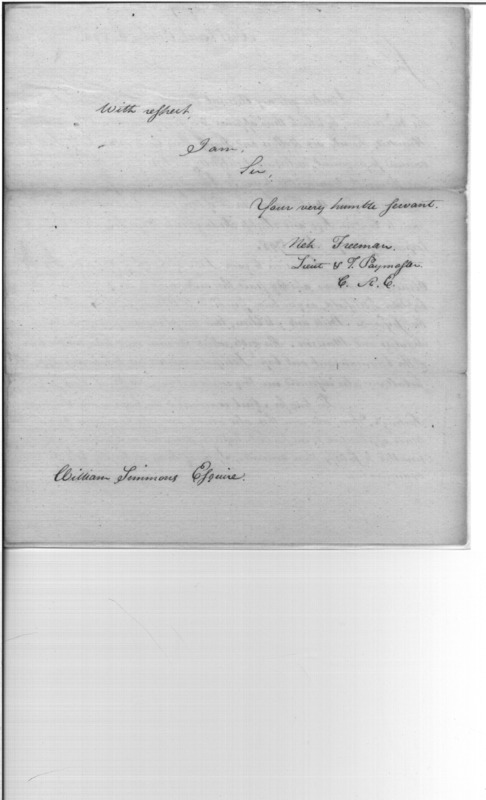 With respect,
I am,
Sir,
Your very humble Servant.
Neh. Freeman.
Lieut & T. Paymaster
C. A. E.
William Simmons Esquire.